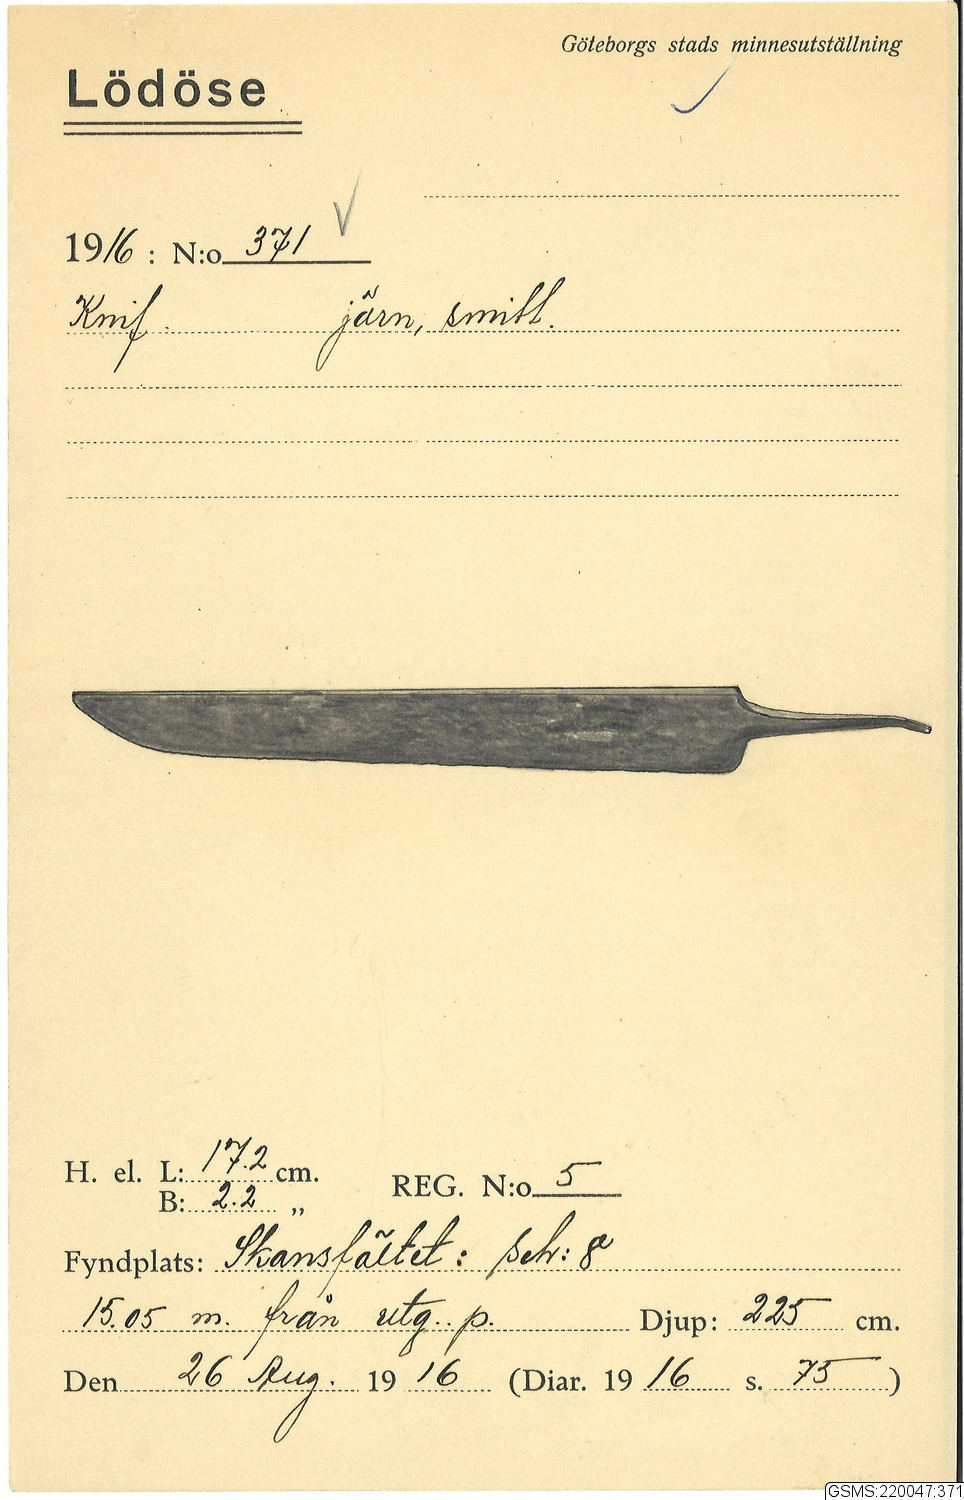 Göteborgs stads minnesutställning
Lödöse
1916 : N:o 371
Knif. järn, smitt.
H. el. L: 17.2 cm.
B: 2.2 „
REG. N:o 5
Fyndplats: Skansfältet: sch: 8
15.05 m. från utg. p. Djup: 225 cm.
Den 26 Aug. 1916 (Diar. 1916 s. 75)
GSMS:220047:371